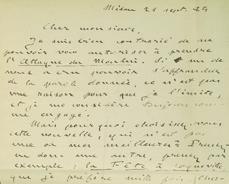 Médan 26 sept. 89
Cher monsieur,
Je suis bien contrarié de ne
pouvoir vous autoriser à prendre
l'Attaque du Moulin. Si un de
nous a cru pouvoir s'affranchir
de la parole donnée, ce n'est pas
une raison pour que je l'imite,
et je me considère toujours comme
engagé.
Mais pourquoi choisissez-vous
cette nouvelle, qui n'est pas
une de mes meilleures? Prenez-
en donc une autre, prenez par
exemple: la Fête à Coqueville
que je préfère mille fois. Cher-